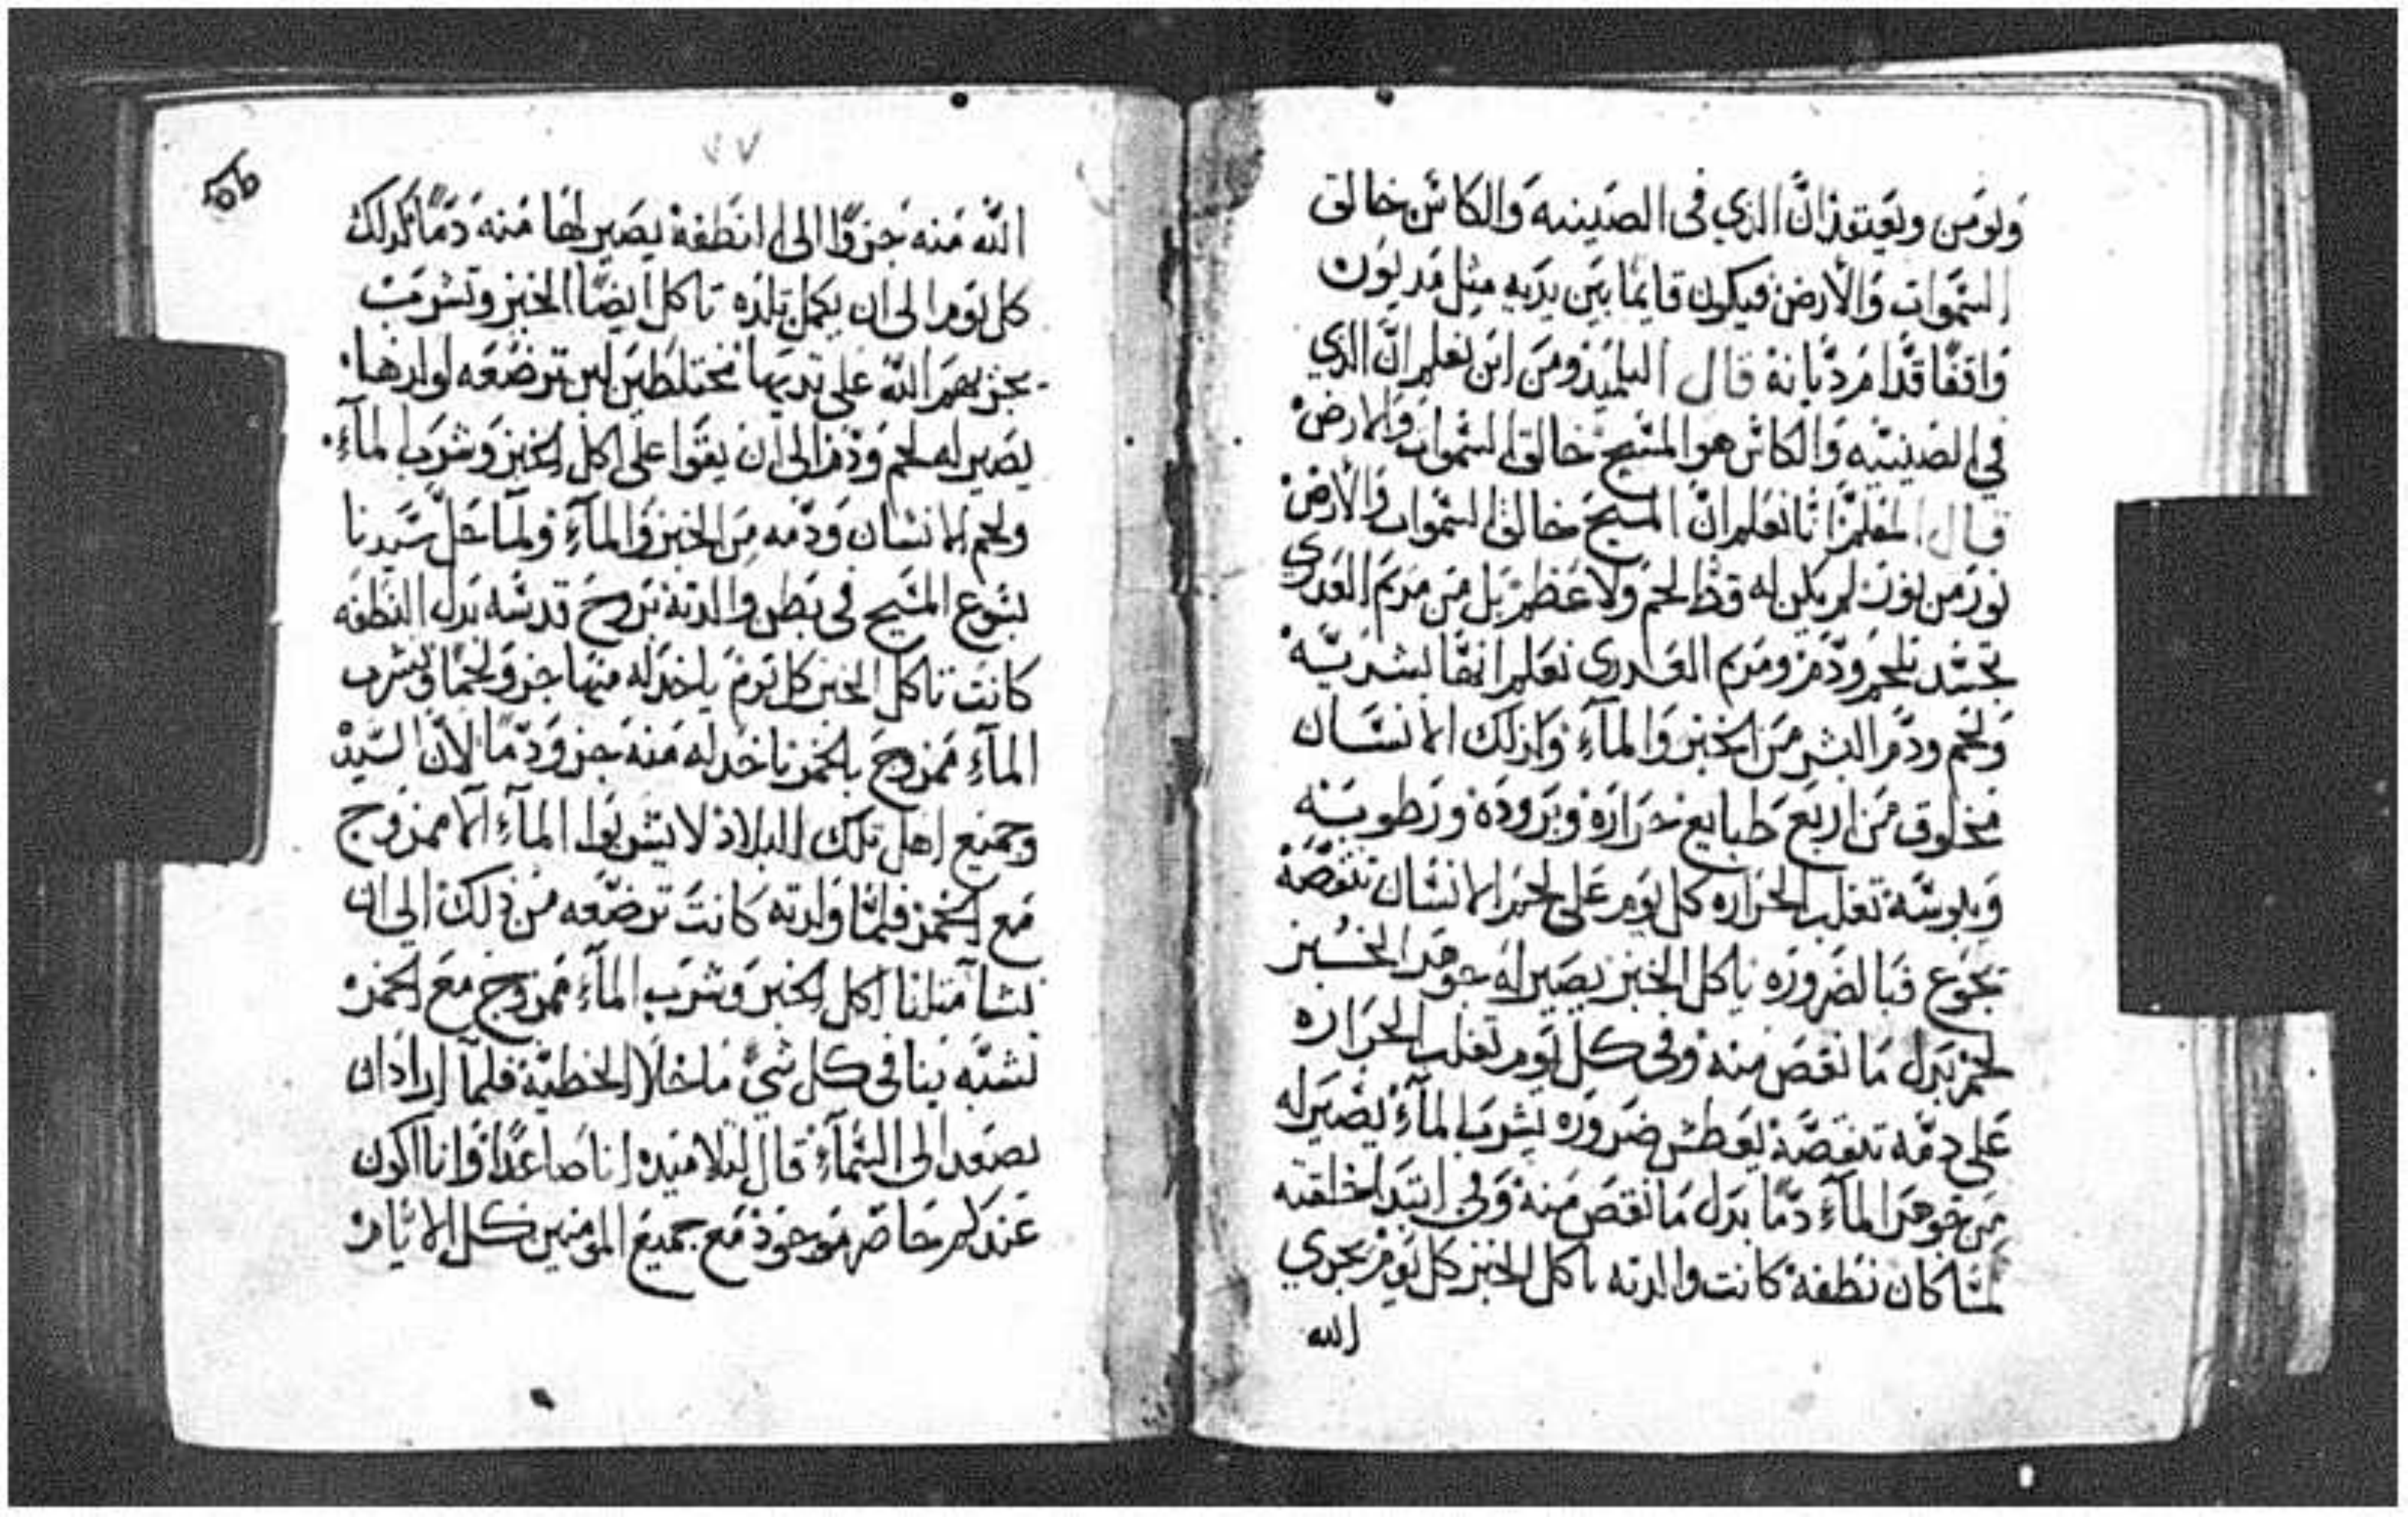 ويومن ويعتقد ان الذي في الصينيه والكاس خالق
السموات والارض فيكون قايما بين يديه مثل مديون
واقفا قدام ديانه قال التلميذ ومن اين نعلم ان الذي
في الصينيه والكاس هو المسيح خالق السموات والارض
قال المعلم انا نعلم ان المسيح خالق السموات والارض
نور من نور لم يكن له قط لحم ولا عظم بل من مريم العدري
تجسد بلحم ودم ومريم العدري نعلم انها بشريه
ولحم ودم البشر من الخبز والماء وذلك الانسان
مخلوق من اربع طبايع حرارة وبرودة ورطوبه
ويبوسة تغلب الحراره كل يوم على لحم الانسان تنقصه
يجوع فبالضروره ياكل الخبز يصير له جوهر الخبز
لحم بدل ما نقص منه وفي كل يوم تغلب الحراره
على دمه تنقصه يعطش ضروره يشرب الماء يصير له
من جوهر الماء دما بدل ما نقص منه وفي ابتدا خلقته
لما كان نطفة كانت والدته تاكل الخبز كل يوم يجزي
الله
٧٧
الله منه جزوا الى النطفة يصير لها منه دما كذلك
كل يوم الى ان يكمل تلده تاكل ايضا الخبز وتشرب
يجزيهم الله على ثدييها مختلطين لبن ترضعه لولدها
يصير له لحم ودم الى ان يقوا على اكل الخبز وشرب الماء
ولحم الانسان ودمه من الخبز والماء ولما حل سيدنا
يسوع المسيح في بطن والدته بروح قدسه بدل النطفه
كانت تاكل الخبز كل يوم ياخد له منها جزو لحما وتشرب
الماء ممزوج بالخمر ياخد له منه جزو دما لان السيد
وجميع اهل تلك البلاد لا يشربوا الماء الا ممزوج
مع الخمر فلما ولدته كانت ترضعه من ذلك الى ان
نشا مثلنا اكل الخبز وشرب الماء ممزوج مع الخمر
تشبه بنا في كل شي ما خلا الخطية فلما اراد ان
يصعد الى السماء قال لتلاميذه انا صاعد وانا اكون
عندكم حاضر موجود مع جميع المومنين كل الايام